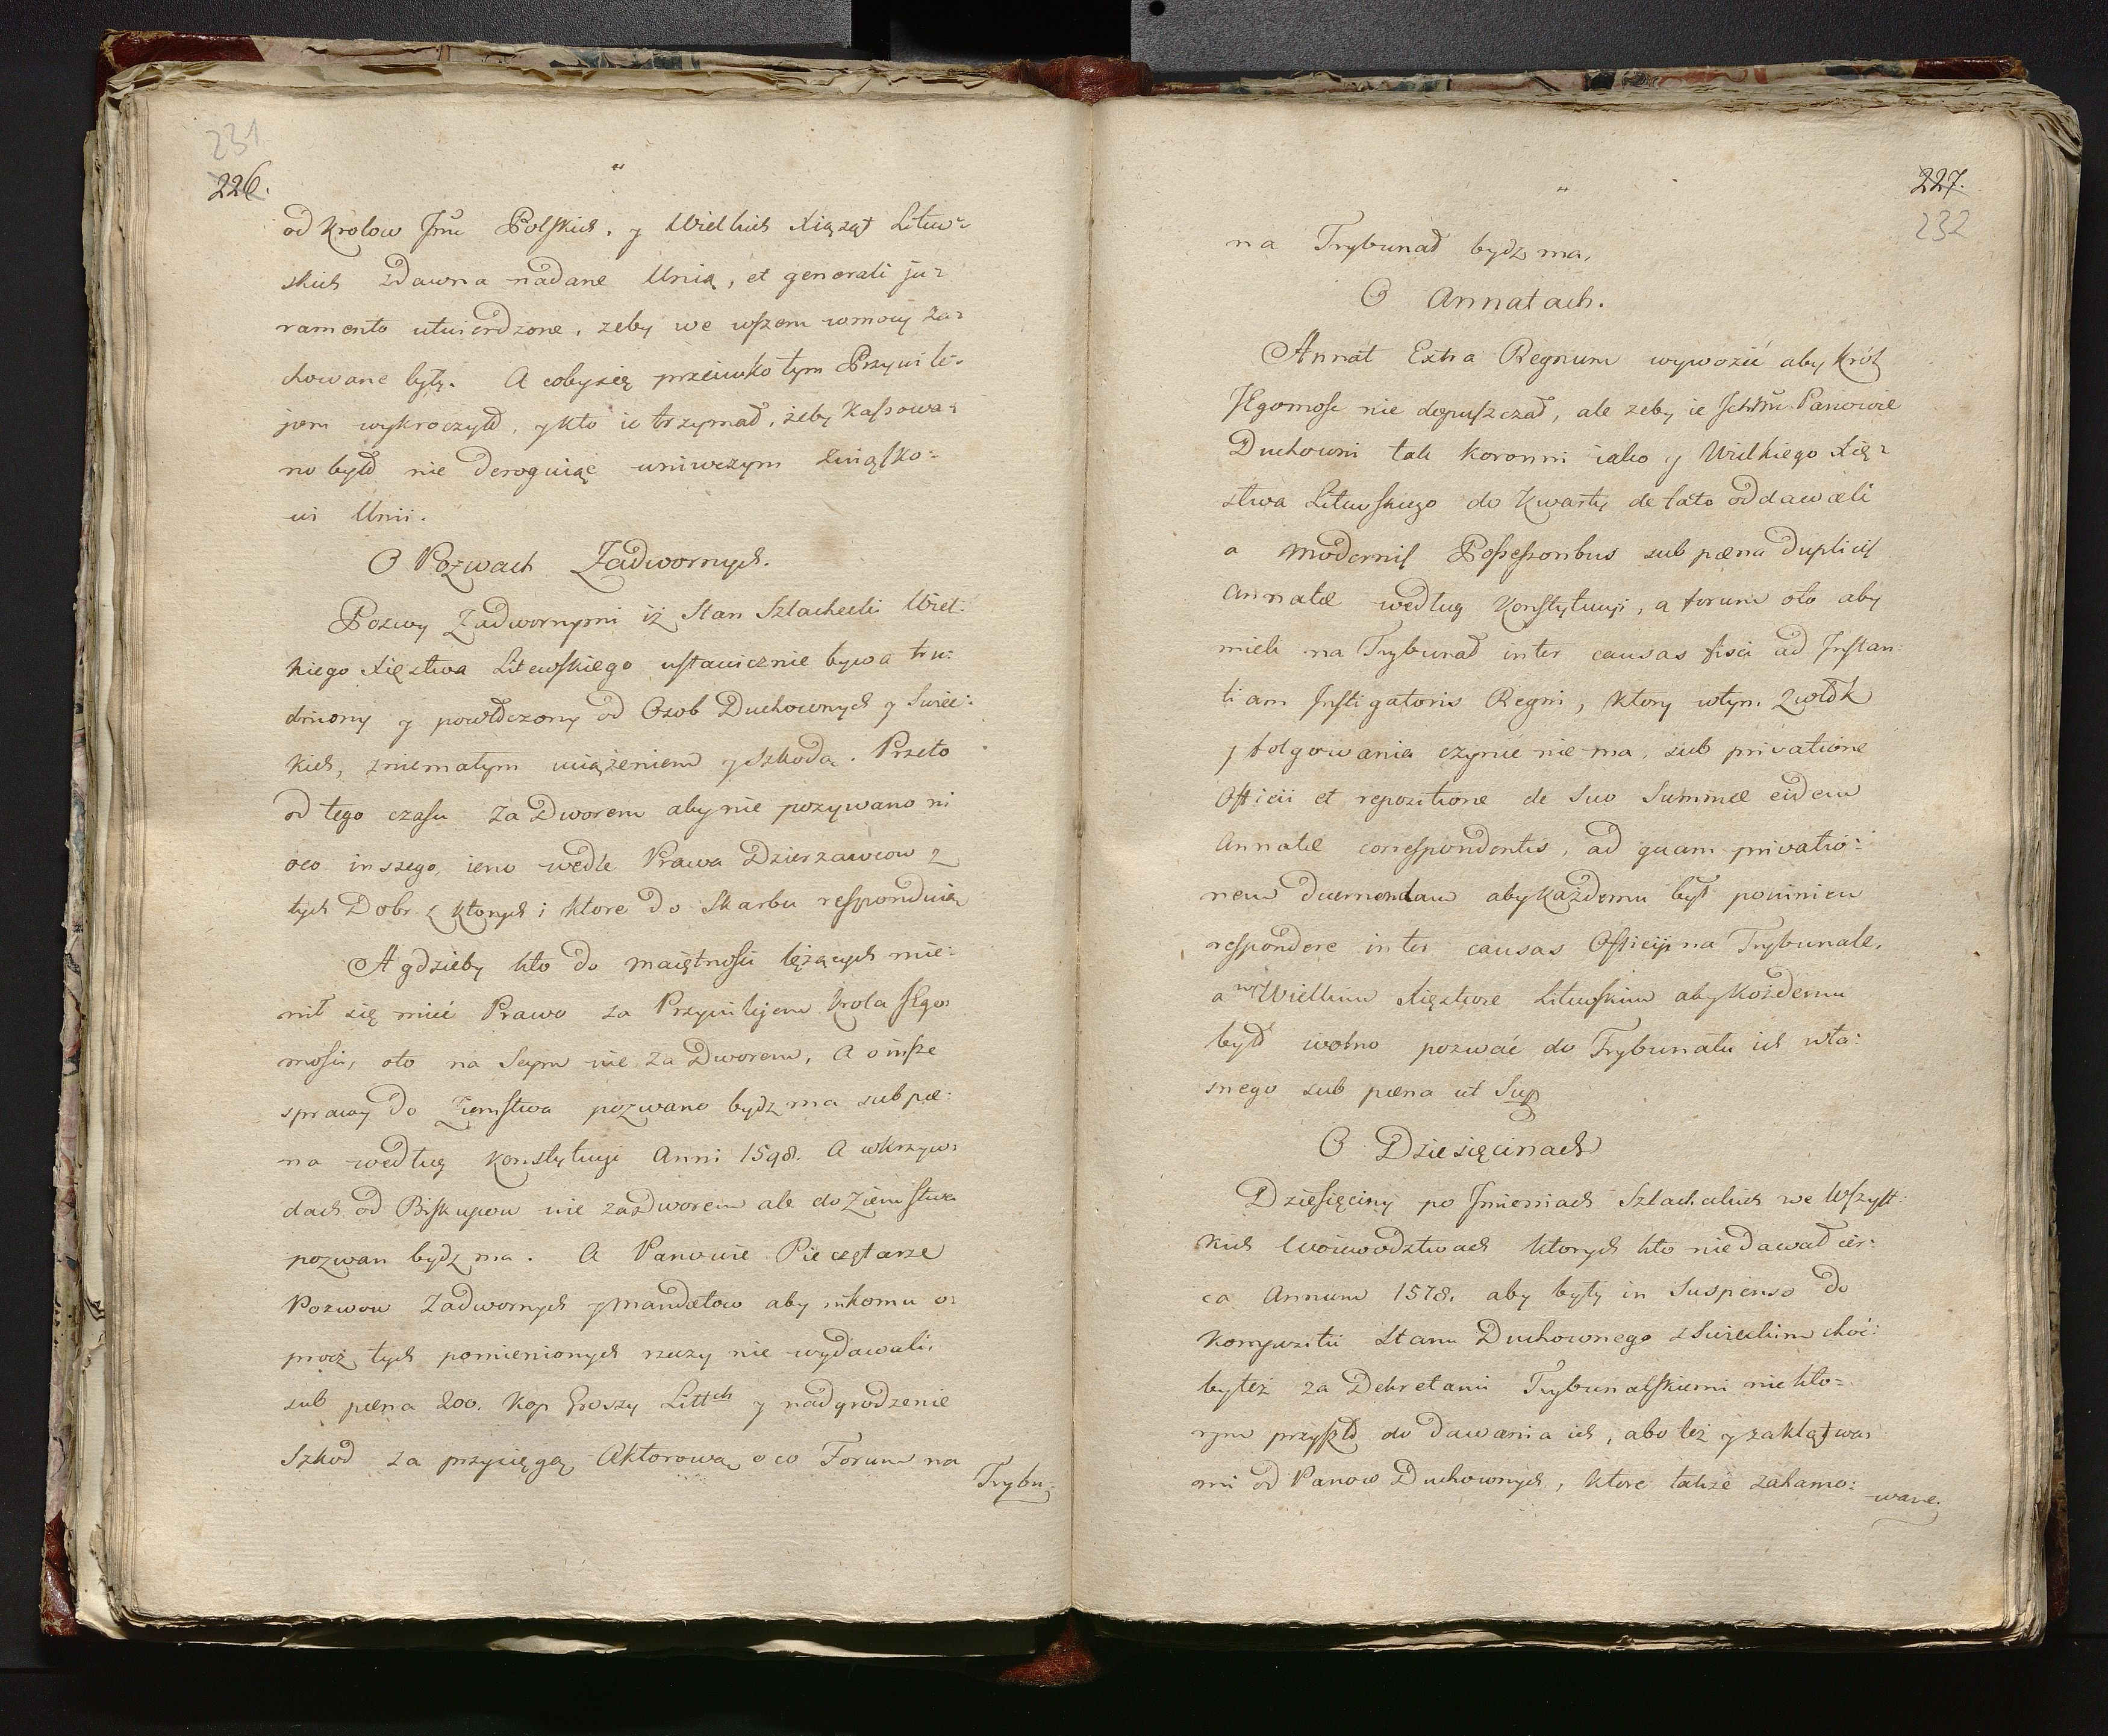 231
226.
od Krolow Jm̃ Polskich, y Wielkich Xiąząt Litew=
skich zdawna nadane Unią, et generali ju=
ramento utwierdzone, zeby we wszem wmocy za=
chowane były. A cobysię przeciwko tym Przywile=
jom wykroczyło, y kto ie trzymał, żeby Kassowa=
no było nie deroguiąc uniwczym Związko=
wi Unii.
O Pozwach Zadwornych.
Pozwy Zadwornymi iż Stan Szlachecki Wiel:
kiego Xięztwa Litewskiego ustawicznie bywa tru:
dniony y powłoczony od Osob Duchownych y Swiec:
kich, zniemałym uciążeniem y szkodą. Przeto
od tego czasu za Dworem aby nie pozywano ni
oco inszego, ieno wedle Prawa Dzierzawcow z
tych Dobr z ktorych i ktore do Skarbu responduią
A gdzieby kto do maiętnosci leżących mie:
nił się mieć Prawo za Przywilejem Krola JEgo=
mosci, oto na Seym nie za Dworem, A o insze
sprawy do Ziemstwa pozwano bydz ma sub pæ:
na według Konstytucyi Anni 1598. A wkrzyw=
dach od Biskupow nie za dworem ale do Ziemstwa
pozwan bydz ma. A Panowie Pieczętarze
Pozwow Zadwornych y mandatow aby nikomu o=
procz tych pomienionych rzeczy nie wydawali,
sub pæna 200. Kop Groszy Littch y nadgrodzenie
Szkod za przysięgą Aktorową, o co Forum na
Trybu=
227.
232
na Trybunał bydz ma.
O Annatach.
Annat Extra Regnum wywozić aby Król
JEgomosc nie dopuszczał, ale zeby ie Ichmm Panowie
Duchowni tak Koronni iako y Wielkiego Xię=
stwa Litewskiego do Kwarty de facto oddawali
a modernis Possessoribus sub pæna duplicis
annatæ według Konstytucyi, a forum oto aby
mieli na Trybunał inter causas fisci ad Instan:
tiam Instigatoris Regni, ktory wtym zwłok
y folgowania czynic nie ma, sub privatione
Officii et repositione de Suo Summæ eidem
Annatæ correspondentis, ad quam privatio:
nem  aby każdemu był powinien
respondere inter causas Officij na Trybunale,
a w Wielkim Xięztwie Litewskim aby Każdemu
było wolno pozwać do Trybunału ich wła:
snego sub pæna ut Sup
O Dziesięcinach
Dziesięciny po Jmieniach Szlacheckich we Wszyst:
kich Woiewodztwach ktorych kto niedawał cir:
ca Annum 1578. aby były in Suspenso do
Kompozitii Stanu Duchownego z Swieckim choc:
byteż za Dekretami Trybunalskiemi niekto=
rym przyszło do dawania ich, abo też y zaklątwa=
mi od Panow Duchownych, ktore także zahamo:
wane.